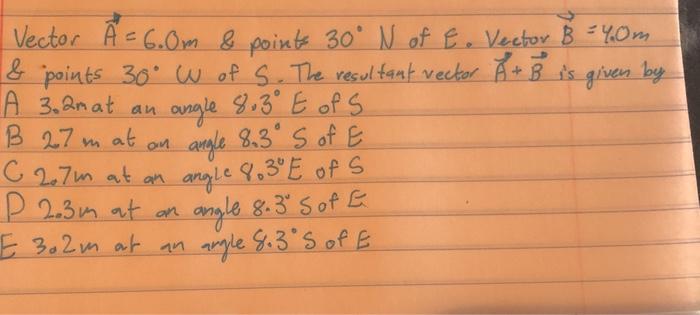 Vector A⃗ = 6.0m & points 30° N of E. Vector B⃗ = 4.0m
& points 30° W of S. The resultant vector A⃗ + B⃗ is given by
A 3.2m at an angle 8.3° E of S
B 27 m at an angle 8.3° S of E
C 2.7m at an angle 8.3° E of S
D 2.3m at an angle 8.3° S of E
E 3.2m at an angle 8.3° S of E